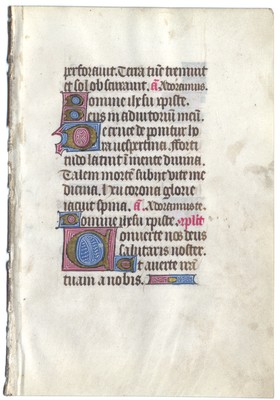 perforavit. Terra tunc tremuit
et sol obscuravit. a Adoramus.
Domine ihesu xpiste.
Deus in adiutorium meum
De cruce deponitur ho
ra vespertina. fforti
tudo latuit i mente divina.
Talem mortem subiit vite me
dicina. heu corona glorie
iacuit spina. a. Adoramus te.
Domine ihesu xpiste. explicit
Converte nos deus
salutaris noster.
Et averte iram
tuam a nobis.